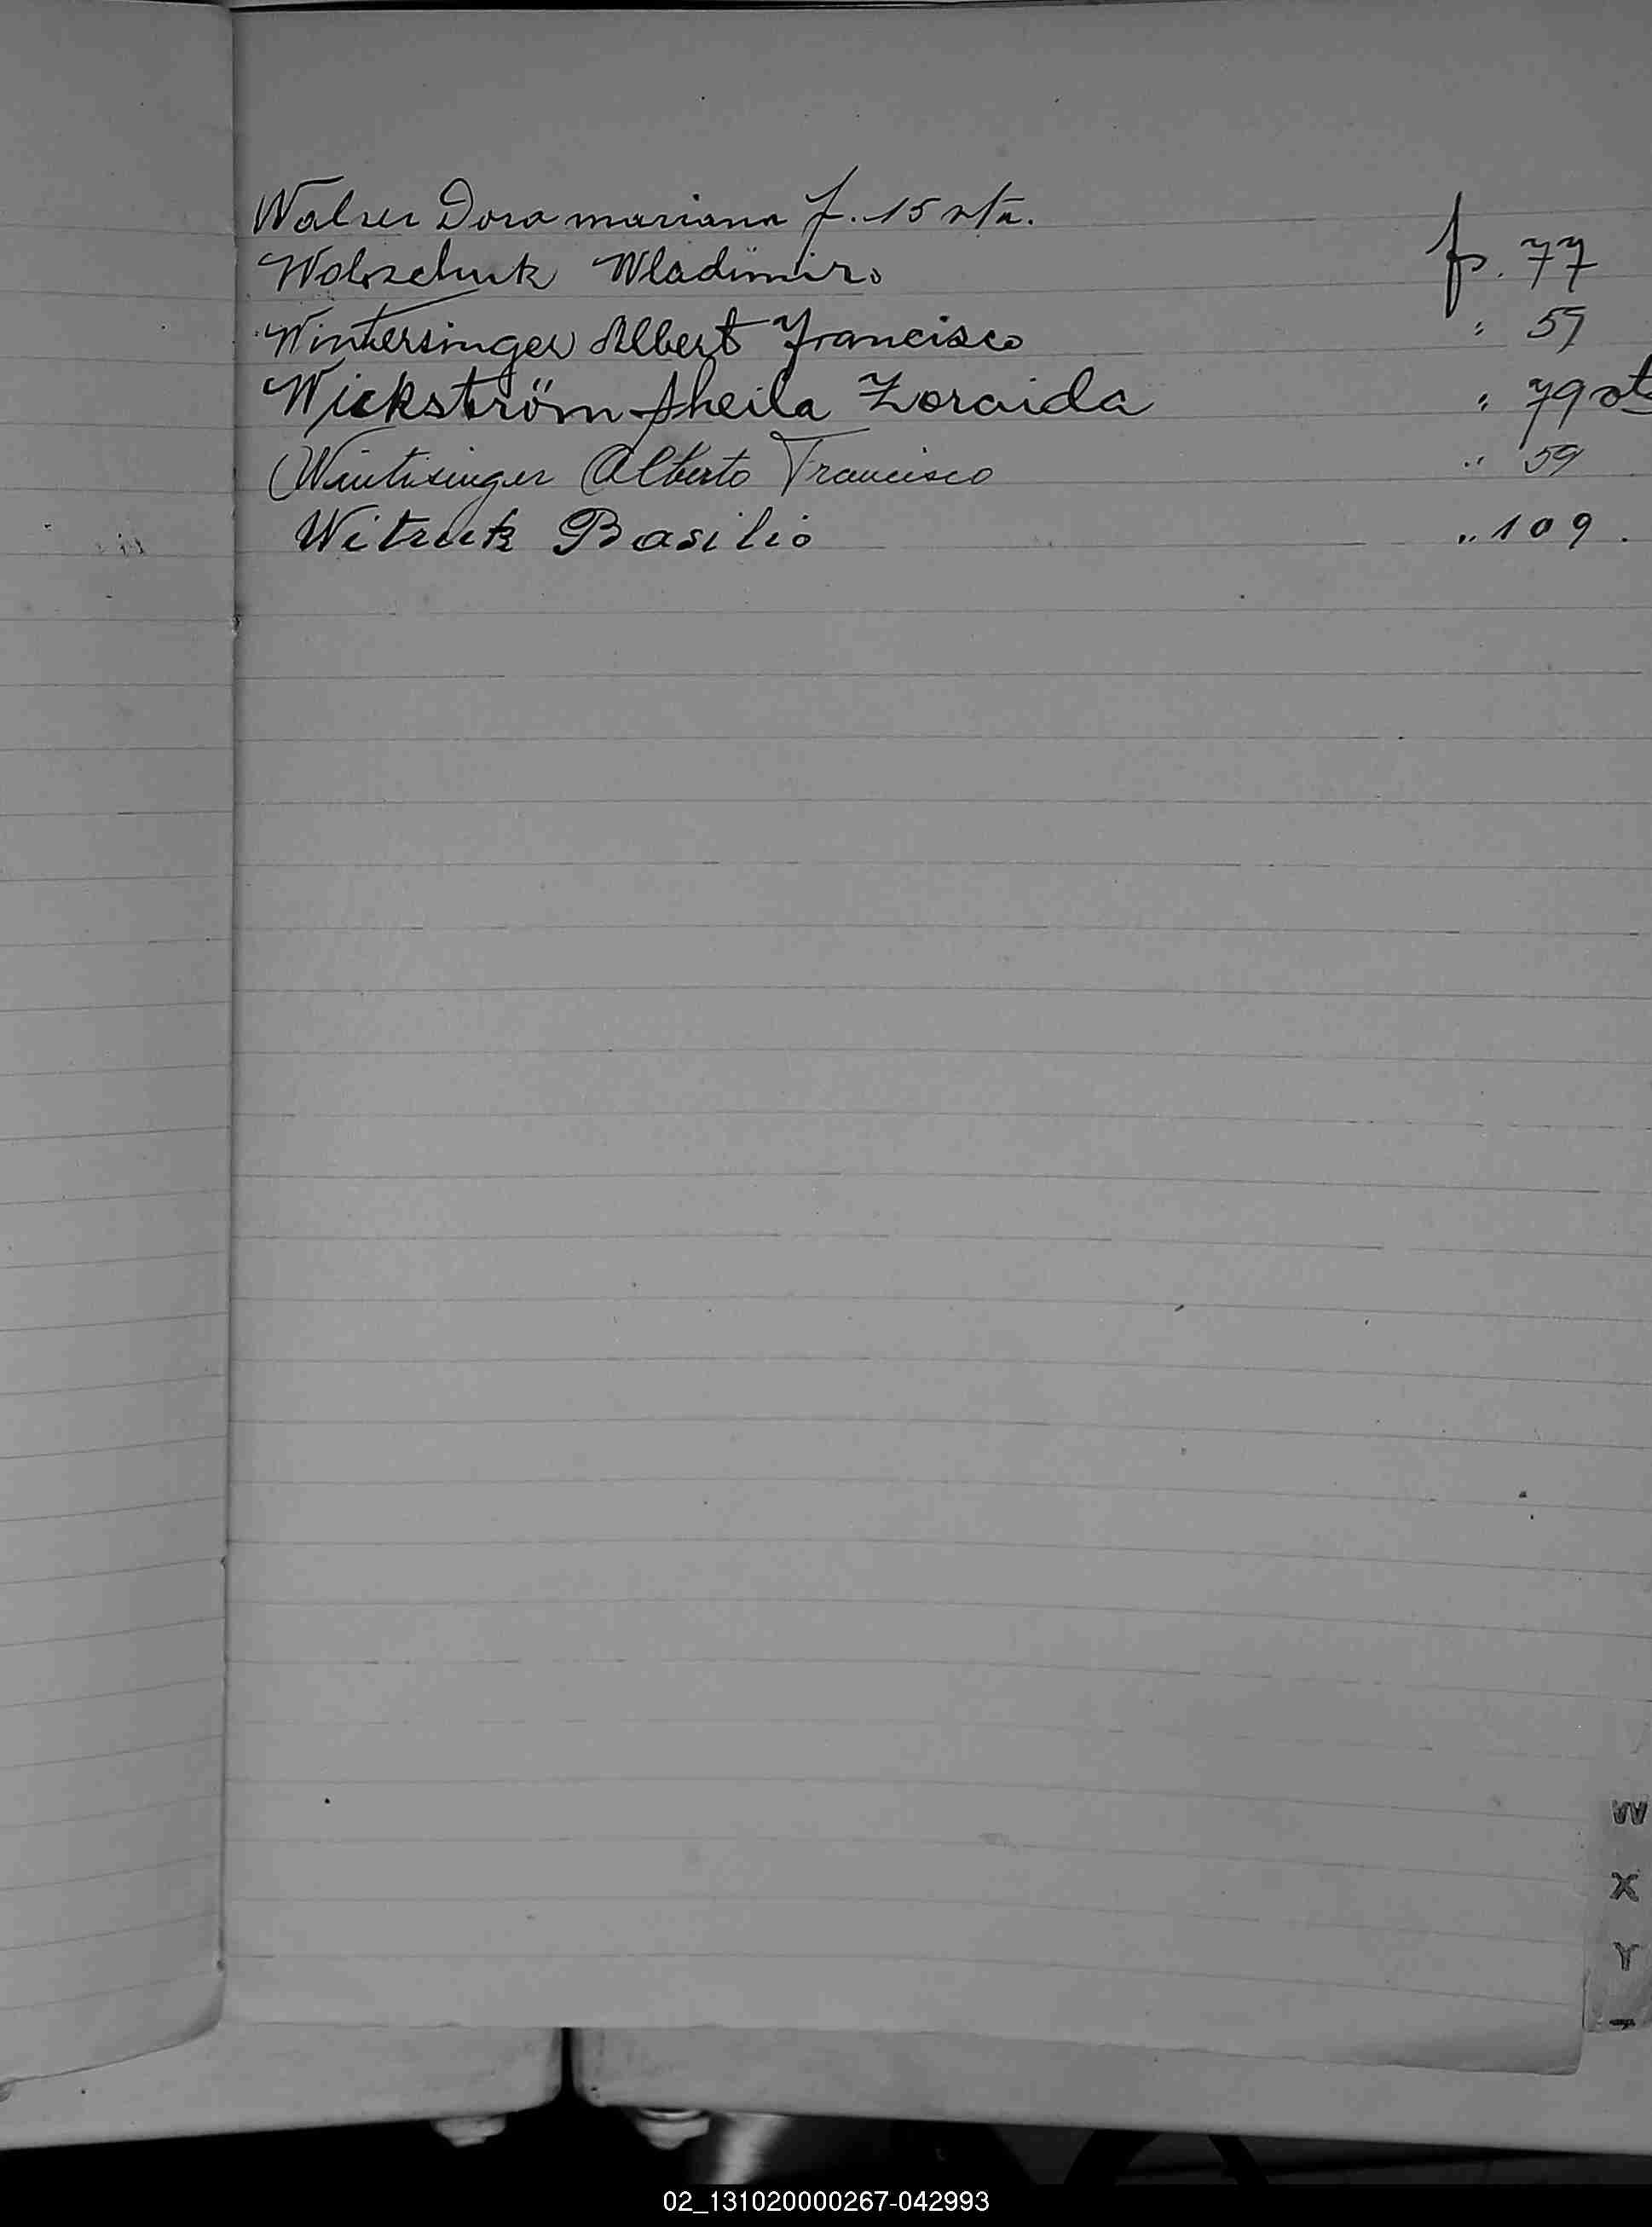 Walser Dora mariana f. 15 vta.
Woloszchuk Wladimiro fs. 77
Wintersinger Albert Francisco " 59
Wickström Sheila Zoraida " 79 vt
Wintersinger Alberto Francisco " 59
Witruk Basilio " 109.
W
X
Y
02_131020000267-042993